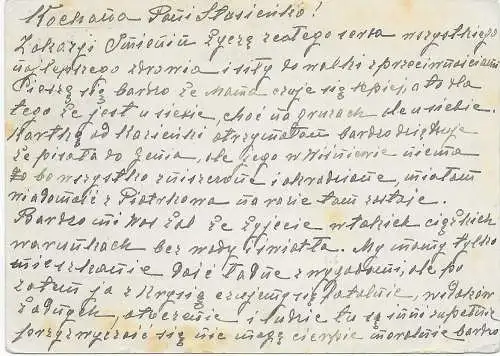 Kochana Pani Stasieńko!
Z okazji Imienin życzę z całego serca wszystkiego
najlepszego zdrowia i siły do walki z przeciwnościami
Cieszę się bardzo że Mama czuje się lepiej, a to dla
tego że jest u siebie, choć na gruzach ale u siebie.
Kartkę od Kazieńki otrzymałam bardzo dziękuję
że pisała do Zenia, ale jego w Wiśniewie niema
bo wszystko zniszczone i okradzione, miałam
wiadomość z Piotrkowa na razie tam zostaje.
Bardzo mi Was żal że żyjecie w takich ciężkich
warunkach bez wody i światła. My mamy tylko
mieszkanie dość ładne z wygodami, ale po
zatem ja z Krysią czujemy się fatalnie, widoków
żadnych, otoczenie i ludzie tu są inni zupełnie
przyzwyczaić się nie mogę cierpię moralnie bardzo